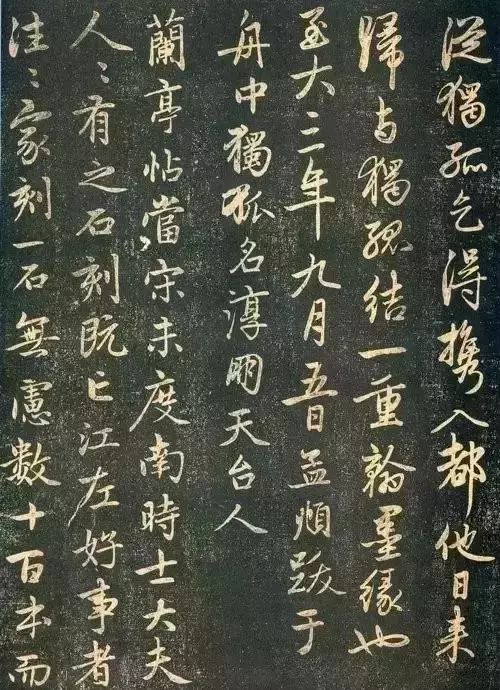 從獨孤乞得携入都他日来
歸与獨孤結一重翰墨緣也
至大三年九月五日孟頫跋于
舟中獨孤名淳朋天台人
蘭亭帖當宋未度南時士大夫
人〻有之石刻既亡江左好事者
往〻家刻一石無慮數十百本而